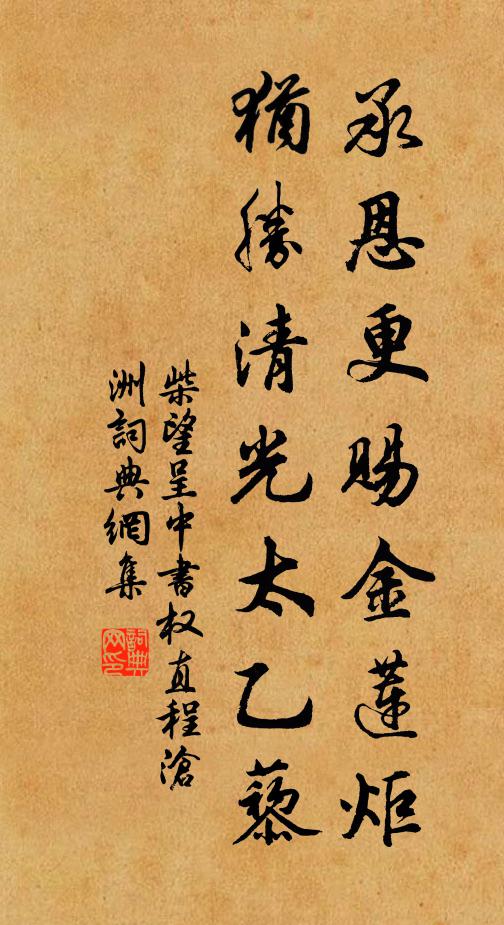 承恩更賜金蓮炬
猶勝清光太乙藜
柴望呈中書权直程滄
洲詞典網集
詞典網印